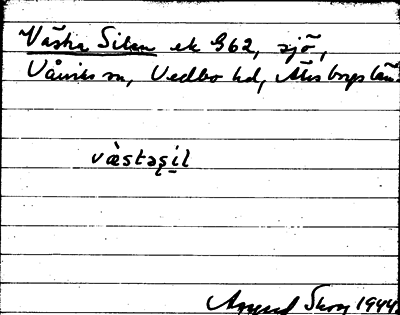 Västra Silen ek 962, sjö,
Vårviks sn, Vedbo hd, Älvsborgs län.
væ̀stəs̨i̱l
Skog 1944.